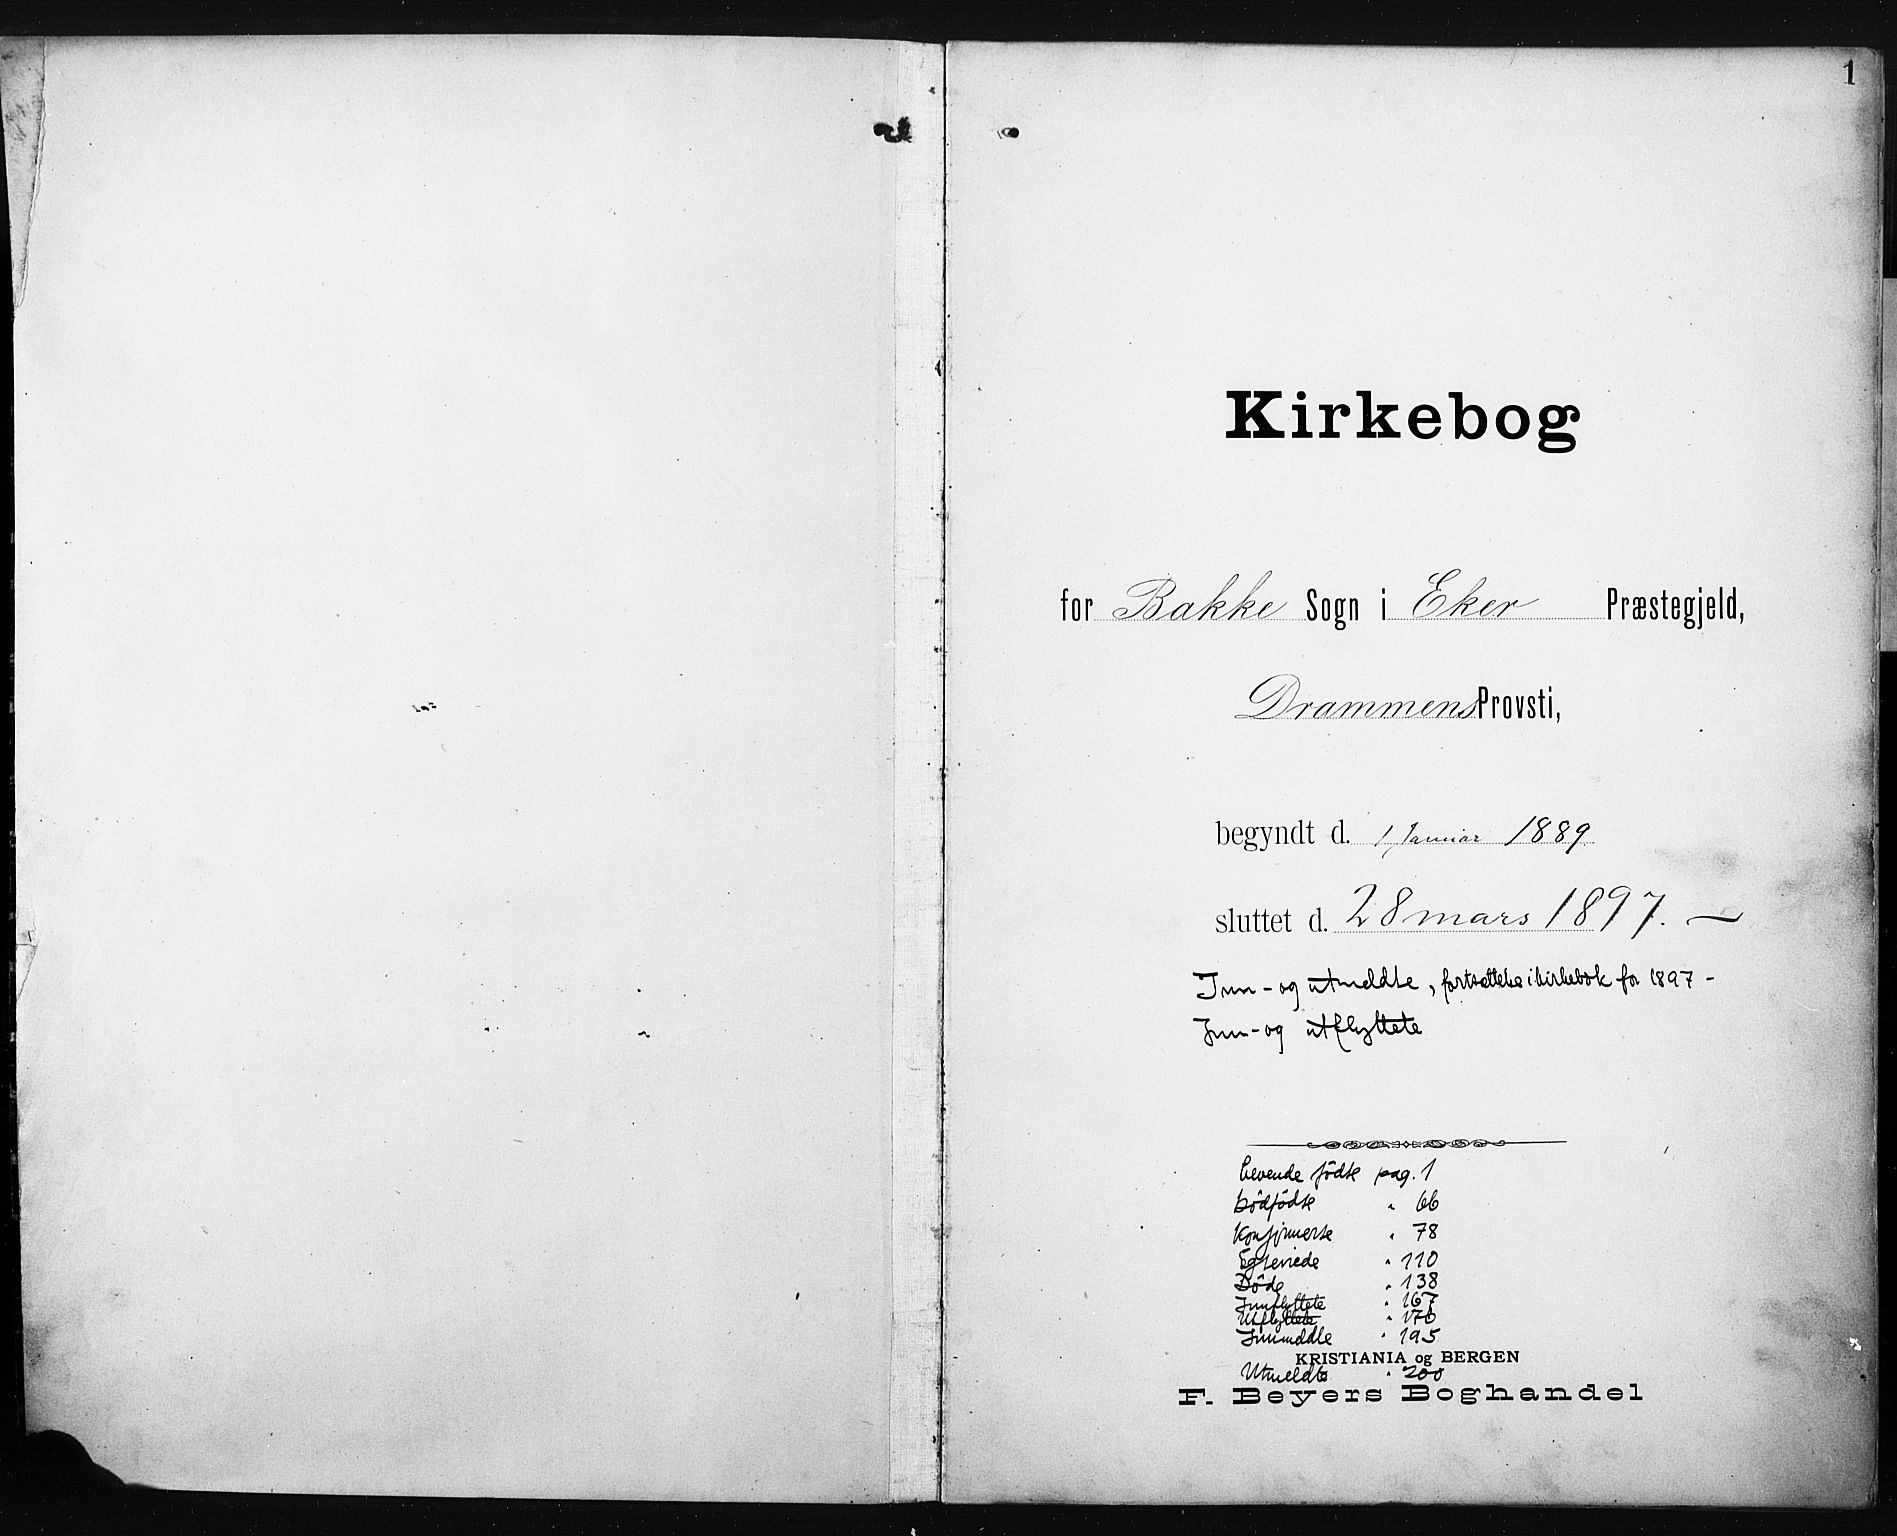 1
Kirkebog
for Bakke Sogn i Eker Præstegjeld,
Drammens Provsti,
begyndt d. 1 Januar 1889
sluttet d. 28 mars 1897. —
Inn- og utmeldte, fortsettelse i kirkebok for 1897 -
Inn- og utflyttete
Levende fødte pag. 1
Dødfødte " 66
Konfirmerte " 78
Egteviede " 110
Døde " 138
Innflyttete " 167
Utflyttete " 170
Innmeldte " 195
KRISTIANIA og BERGEN
Utmeldte " 200
F. Beyers Boghandel